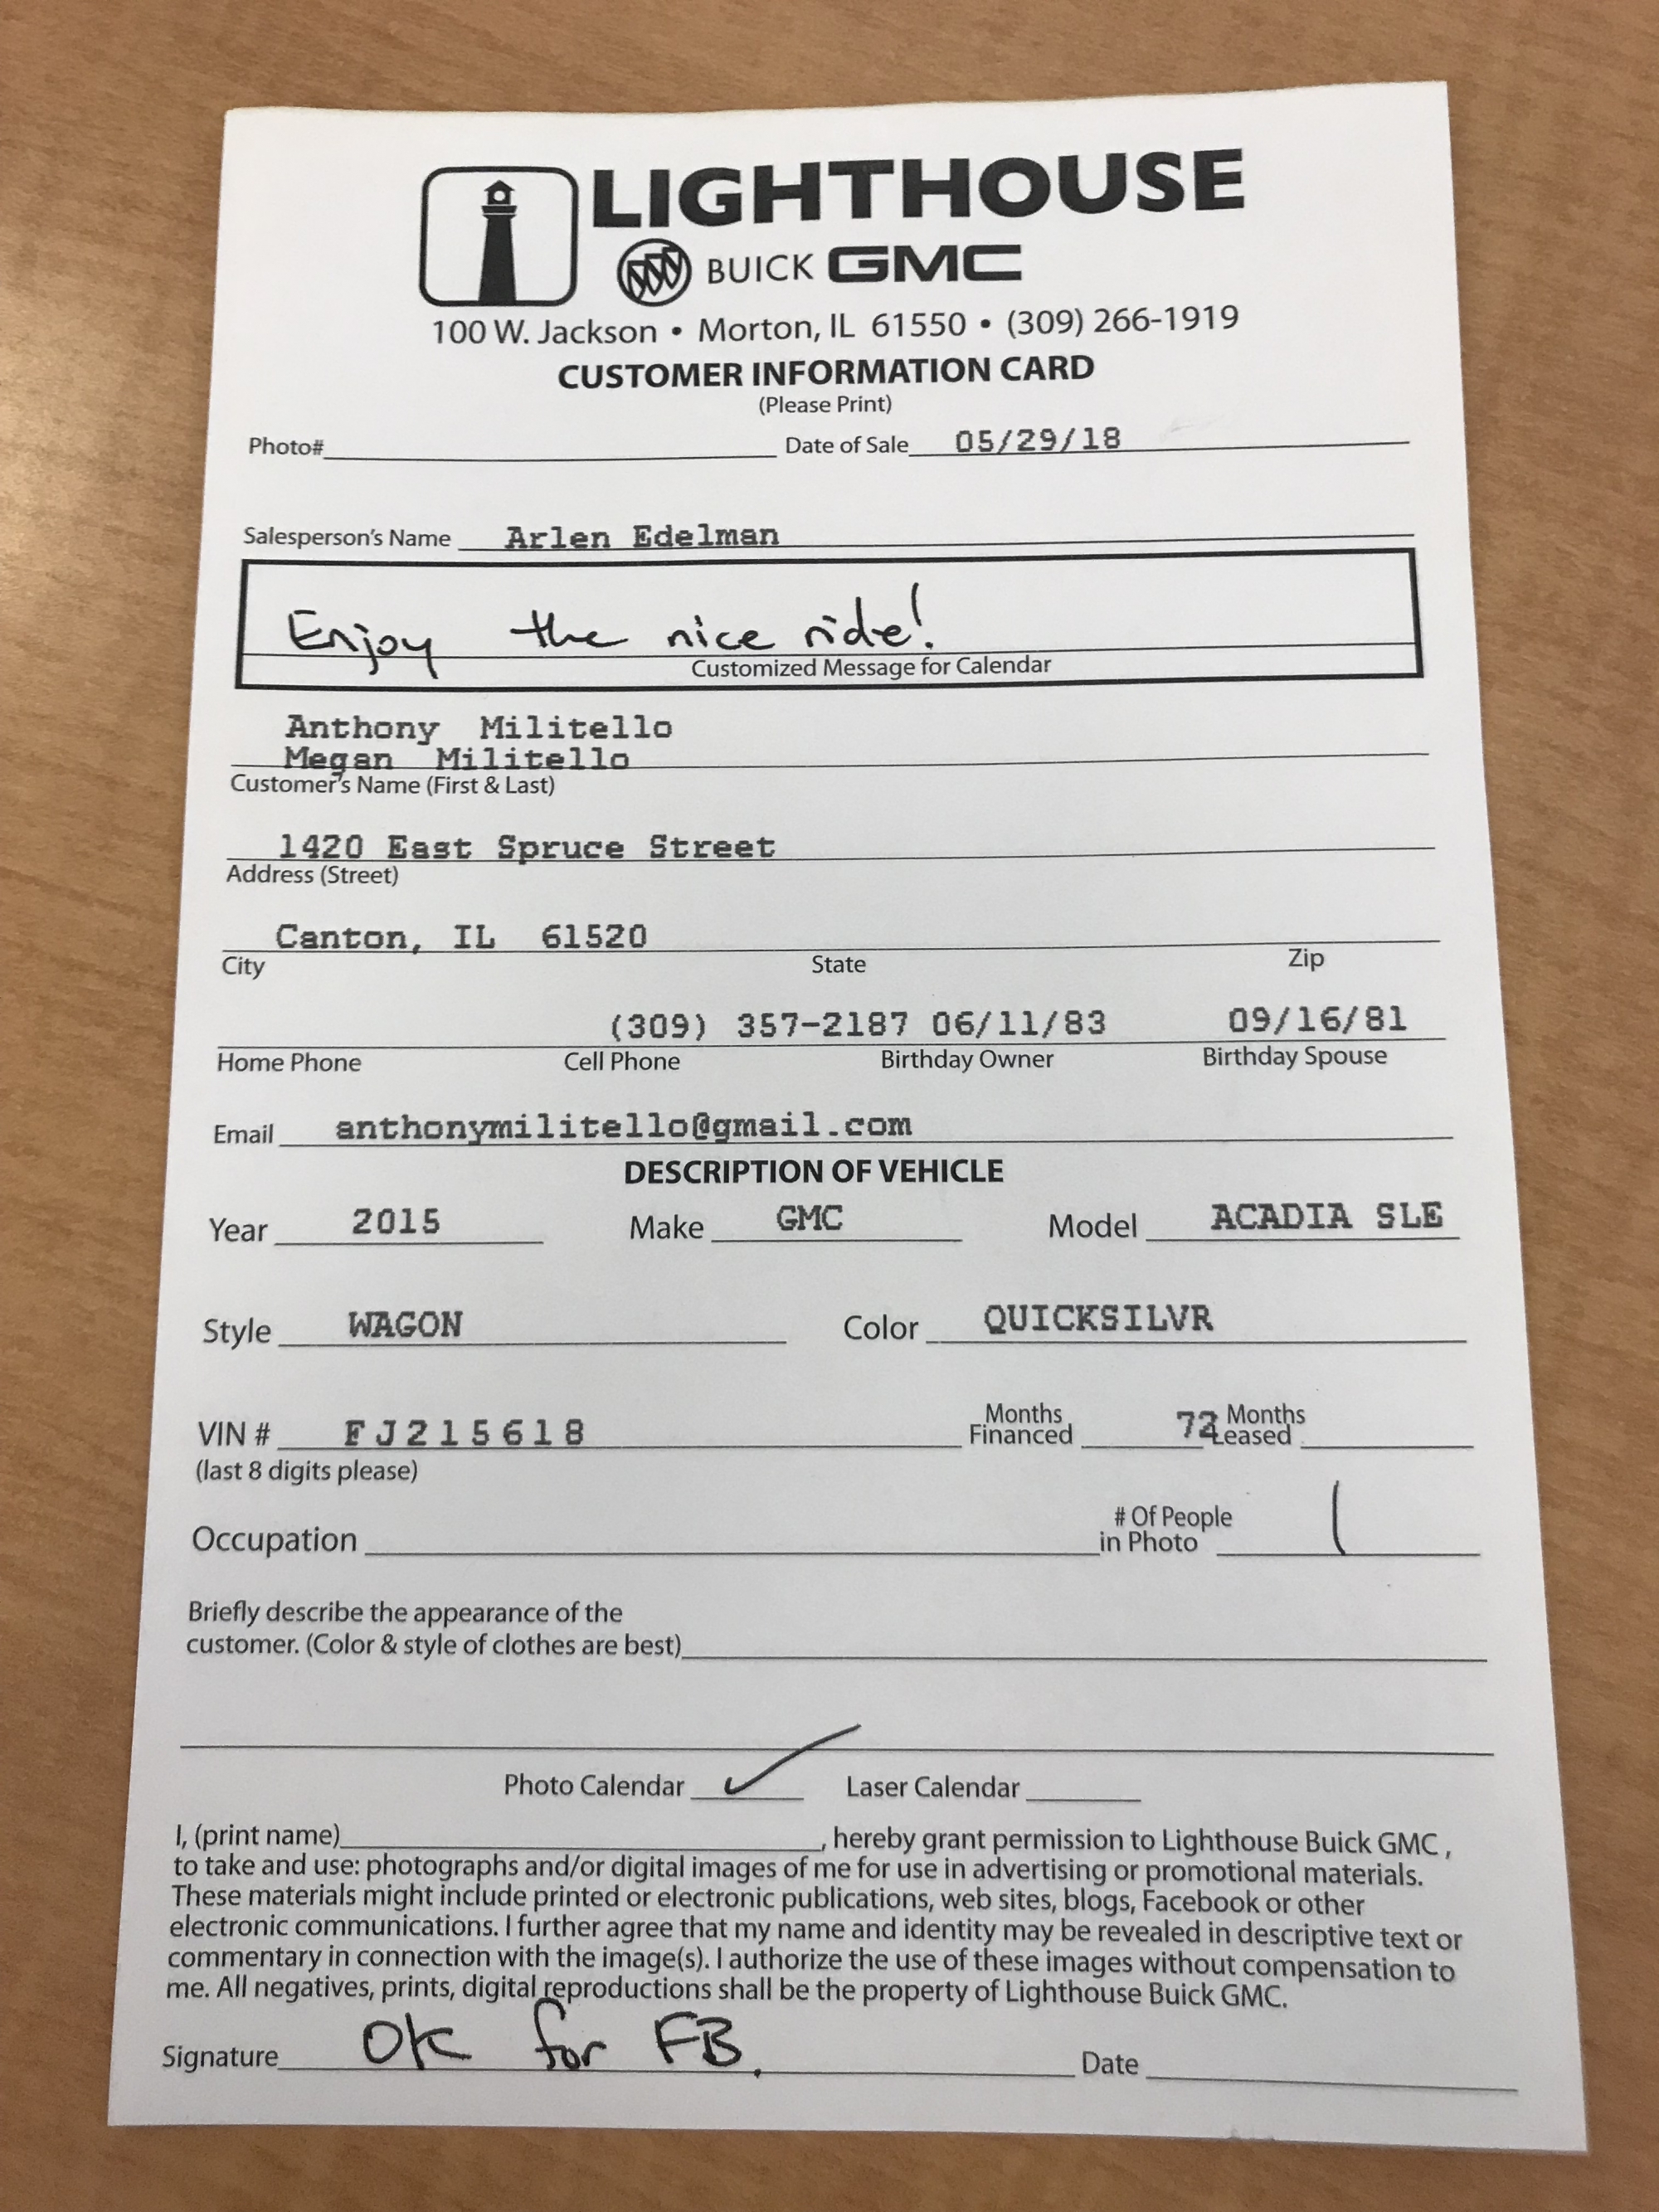 LIGHTHOUSE
BUICK GMC
100 W. Jackson • Morton, IL 61550 • (309) 266-1919
CUSTOMER INFORMATION CARD
(Please Print)
Photo# Date of Sale 05/29/18
Salesperson's Name Arlen Edelman
Enjoy the nice ride!
Customized Message for Calendar
Anthony Militello
Megan Militello
Customer's Name (First & Last)
1420 East Spruce Street
Address (Street)
Canton, IL 61520
City State Zip
(309) 357-2187 06/11/83 09/16/81
Home Phone Cell Phone Birthday Owner Birthday Spouse
Email anthonymilitello@gmail.com
DESCRIPTION OF VEHICLE
Year 2015 Make GMC Model ACADIA SLE
Style WAGON Color QUICKSILVR
VIN # FJ215618 Months Financed 72 Months Leased
(last 8 digits please)
Occupation # Of People in Photo 1
Briefly describe the appearance of the
customer. (Color & style of clothes are best)
Photo Calendar ✓ Laser Calendar
I, (print name) , hereby grant permission to Lighthouse Buick GMC ,
to take and use: photographs and/or digital images of me for use in advertising or promotional materials.
These materials might include printed or electronic publications, web sites, blogs, Facebook or other
electronic communications. I further agree that my name and identity may be revealed in descriptive text or
commentary in connection with the image(s). I authorize the use of these images without compensation to
me. All negatives, prints, digital reproductions shall be the property of Lighthouse Buick GMC.
Signature OK for FB. Date